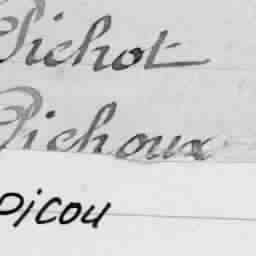 Pichot
Pichoux
Picou